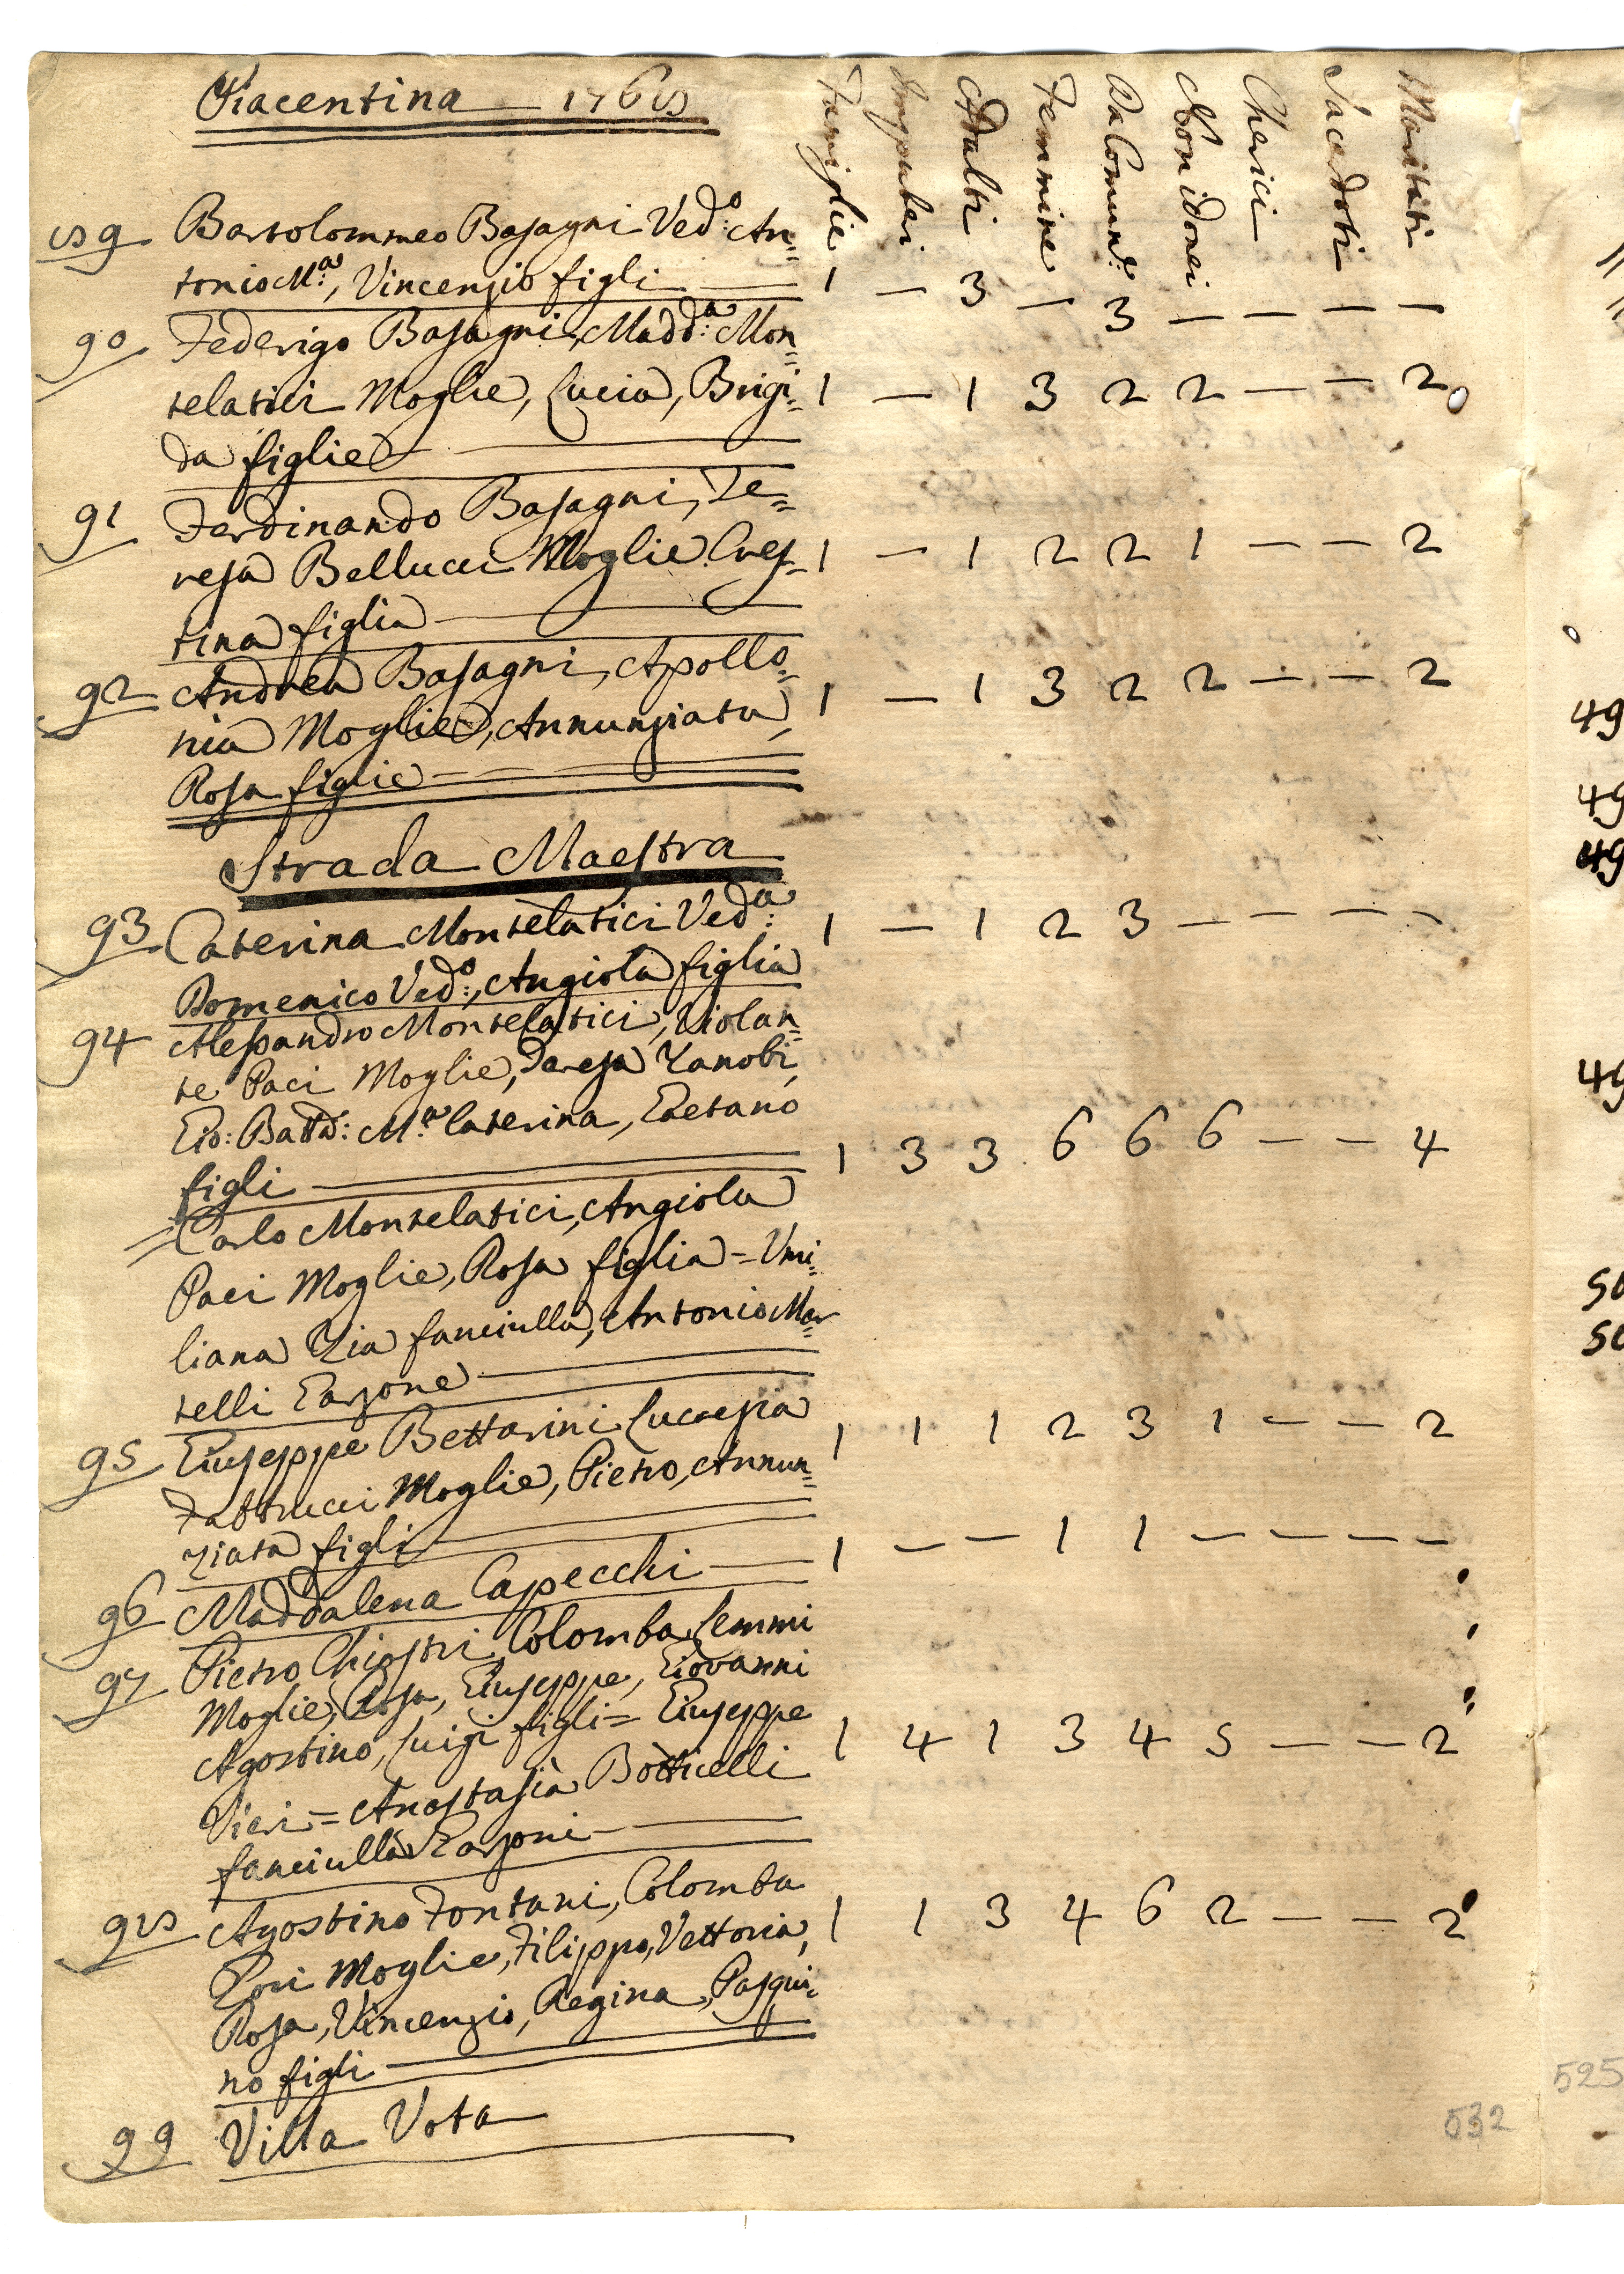 Piacentina 1768
Famiglie Impuberi Adulti Femmine Da Comun.e Non idonei Cherici Sacerdoti Maritati
89 Bartolommeo Basagni Ved:o An=
tonio M.a, Vincenzio figli 1 — 3 — 3 — — — —
90 Federigo Basagni, Madd:a Mon=
telatici Moglie, Lucia, Brigi= 1 — 1 3 2 2 — — 2
da figlie
91 Ferdinando Basagni, Te=
resa Bellucci Moglie. Cres= 1 — 1 2 2 1 — — 2
tina figlia
92 Andrea Basagni, Apollo=
nia Moglie, Annunziata, 1 — 1 3 2 2 — — 2
Rosa figlie
Strada Maestra
93 Caterina Montelatici Ved:a 1 — 1 2 3 — — — —
Domenico Ved:o, Angiola figlia
94 Alessandro Montelatici, Violan=
te Paci Moglie, Teresa Zanobi,
Gio: Batta: M.a Caterina, Gaetano
figli 1 3 3 6 6 6 — — 4
= Carlo Montelatici, Angiola
Paci Moglie, Rosa figlia = Umi=
liana Zia fanciulla, Antonio Mar=
telli Garzone
95 Giuseppe Bettarini Lucrezia 1 1 1 2 3 1 — — 2
Fabbrucci Moglie, Pietro, Annun=
ziata figli
96 Maddalena Capecchi 1 — — 1 1 — — — —
97 Pietro Chiostri, Colomba Lemmi
Moglie, Rosa, Giuseppe, Giovanni
Agostino, Luigi figli = Giuseppe 1 4 1 3 4 5 — — 2
Vieri = Anastasia Botticelli
fanciulla Garzoni
98 Agostino Fontani, Colomba 1 1 3 4 6 2 — — 2
Gori Moglie, Filippo, Vettoria,
Rosa, Vincenzio, Regina, Pasqui=
no figli
99 Villa Vota
532
49
49
49
49
50
50
525